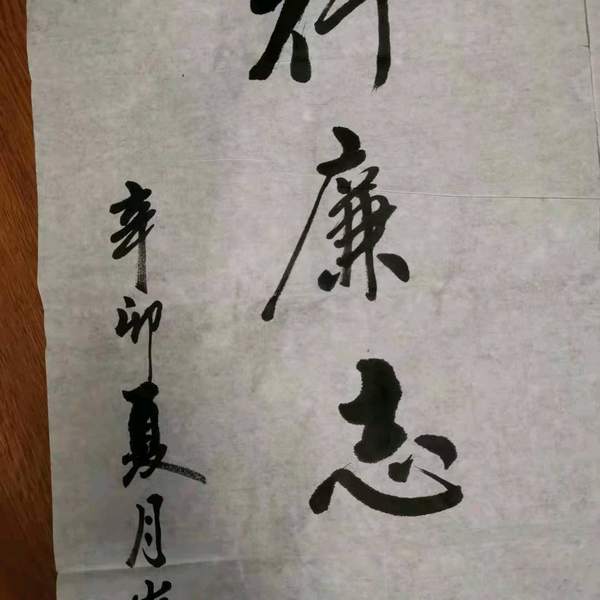 廉志
辛卯夏月